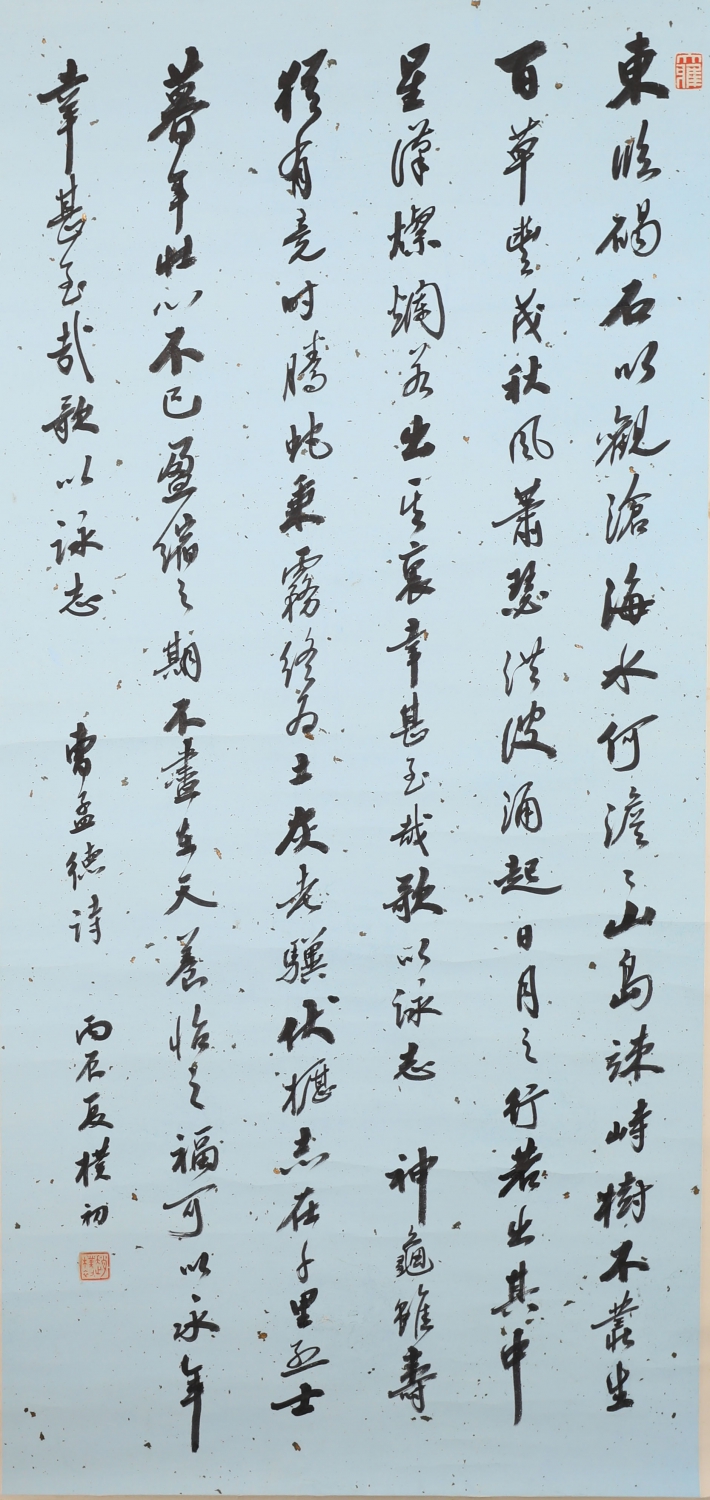 東臨碣石以觀滄海水何澹々山島竦峙樹不叢生
百草豐茂秋風蕭瑟洪波涌起日月之行若出其中
星漢燦爛若出其裏幸甚至哉歌以詠志 神龜雖壽
猶有竟時騰蛇乘霧終為土灰老驥伏櫪志在千里烈士
暮年壯心不已盈縮之期不盡在天養怡之福可以永年
幸甚至哉歌以詠志 曹孟德詩 丙辰夏樸初